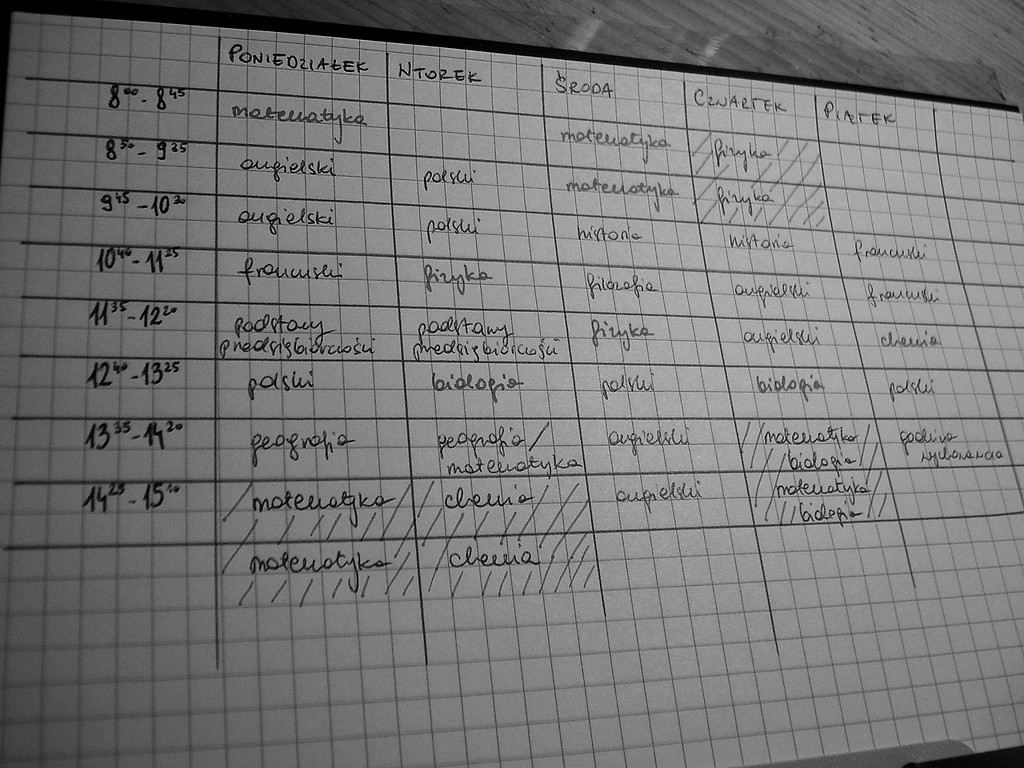 PONIEDZIAŁEK WTOREK ŚRODA CZWARTEK PIĄTEK
8⁰⁰-8⁴⁵ matematyka matematyka fizyka
8⁵⁰-9²⁵ angielski polski matematyka fizyka
9⁴⁵-10³⁰ angielski polski historia historia francuski
10⁴⁰-11²⁵ francuski fizyka filozofia angielski francuski
11³⁵-12²⁰ podstawy podstawy fizyka angielski chemia
przedsiębiorczości przedsiębiorczości
12⁴⁰-13²⁵ polski biologia polski biologia polski
13³⁵-14²⁰ geografia geografia/ angielski matematyka/ godzina
matematyka biologia wychowawcza
14²⁵-15¹⁰ matematyka chemia angielski matematyka/
biologia
matematyka chemia